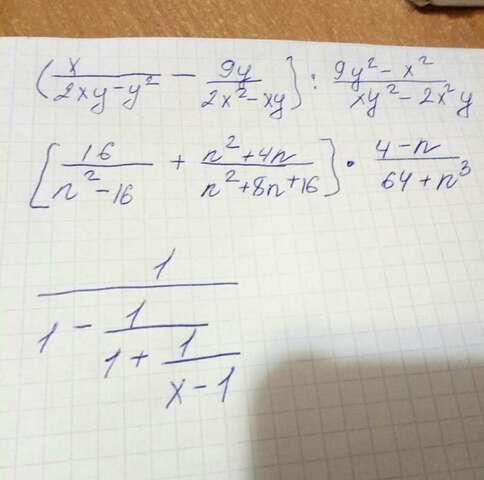 (x/(2xy-y²) - 9y/(2x²-xy)] : (9y²-x²)/(xy²-2x²y)
[16/(n²-16) + (n²+4n)/(n²+8n+16)] · (4-n)/(64+n³)
1/(1 - 1/(1 + 1/(x-1)))